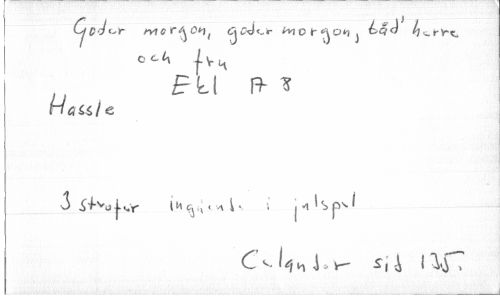 Goder morgon, goder morgon, båd' herre
och fru
Ekl A 8
Hassle
3 strofer ingående i julspel
Celander sid 135.